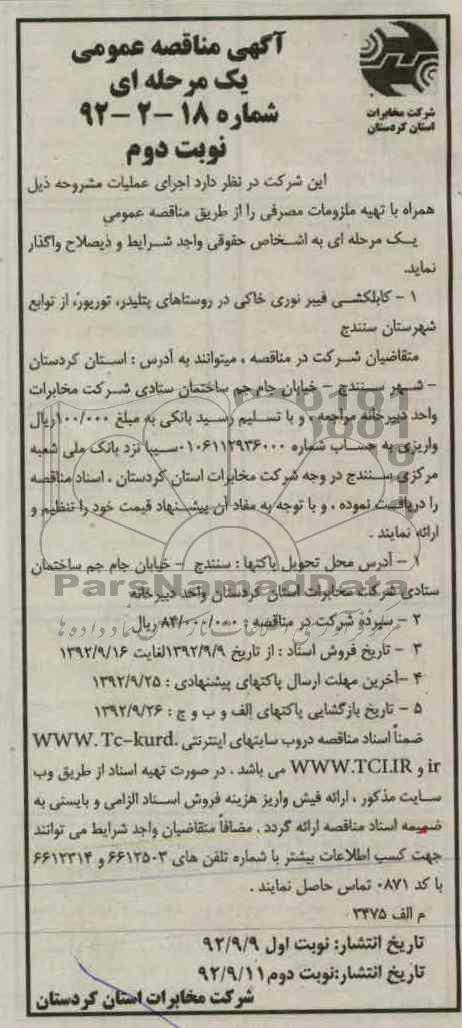 شرکت مخابرات
استان کردستان
آگهی مناقصه عمومی
یک مرحله ای
شماره ۱۸ -۲ -۹۲
نوبت دوم
این شرکت در نظر دارد اجرای عملیات مشروحه ذیل
همراه با تهیه ملزومات مصرفی را از طریق مناقصه عمومی
یک مرحله ای به اشخاص حقوقی واجد شرایط و ذیصلاح واگذار
نماید.
۱ - کابلکشی فیبر نوری خاکی در روستاهای پتلیدر، توریور، از توابع
شهرستان سنندج
متقاضیان شرکت در مناقصه ، میتوانند به آدرس : استان کردستان
- شهر سنندج - خیابان جام جم ساختمان ستادی شرکت مخابرات
واحد دبیرخانه مراجعه ، و با تسلیم رسید بانکی به مبلغ ۱۰۰/۰۰۰ریال
واریزی به حساب شماره ۰۱۰۶۱۱۲۹۳۶۰۰۰سیبا نزد بانک ملی شعبه
مرکزی سنندج در وجه شرکت مخابرات استان کردستان ، اسناد مناقصه
را دریافت نموده ، و با توجه به مفاد آن پیشنهاد قیمت خود را تنظیم و
ارائه نمایند .
۱ - آدرس محل تحویل پاکتها : سنندج - خیابان جام جم ساختمان
ستادی شرکت مخابرات استان کردستان واحد دبیرخانه
ParsNamadData
۲ - سپرده شرکت در مناقصه : ۸۴/۰۰۰/۰۰۰ ریال
۳ - تاریخ فروش اسناد : از تاریخ ۱۳۹۲/۹/۹لغایت ۱۳۹۲/۹/۱۶
۴ -آخرین مهلت ارسال پاکتهای پیشنهادی : ۱۳۹۲/۹/۲۵
۵ - تاریخ بازگشایی پاکتهای الف و ب و ج : ۱۳۹۲/۹/۲۶
ضمناً اسناد مناقصه دروب سایتهای اینترنتی WWW.Tc-kurd.
ir و WWW.TCI.IR می باشد . در صورت تهیه اسناد از طریق وب
سایت مذکور ، ارائه فیش واریز هزینه فروش اسناد الزامی و بایستی به
ضمیمه اسناد مناقصه ارائه گردد . مضافاً متقاضیان واجد شرایط می توانند
جهت کسب اطلاعات بیشتر با شماره تلفن های ۶۶۱۲۵۰۳ و ۶۶۱۲۳۱۴
با کد ۰۸۷۱ تماس حاصل نمایند .
م الف ۳۴۷۵
تاریخ انتشار: نوبت اول ۹۲/۹/۹
تاریخ انتشار:نوبت دوم۹۲/۹/۱۱
شرکت مخابرات استان کردستان